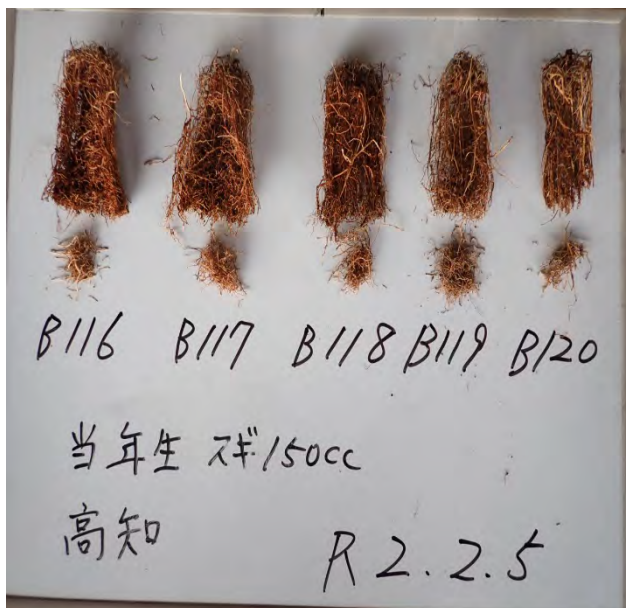 B116 B117 B118 B119 B120
当年生 スギ150cc
高知
R2.2.5